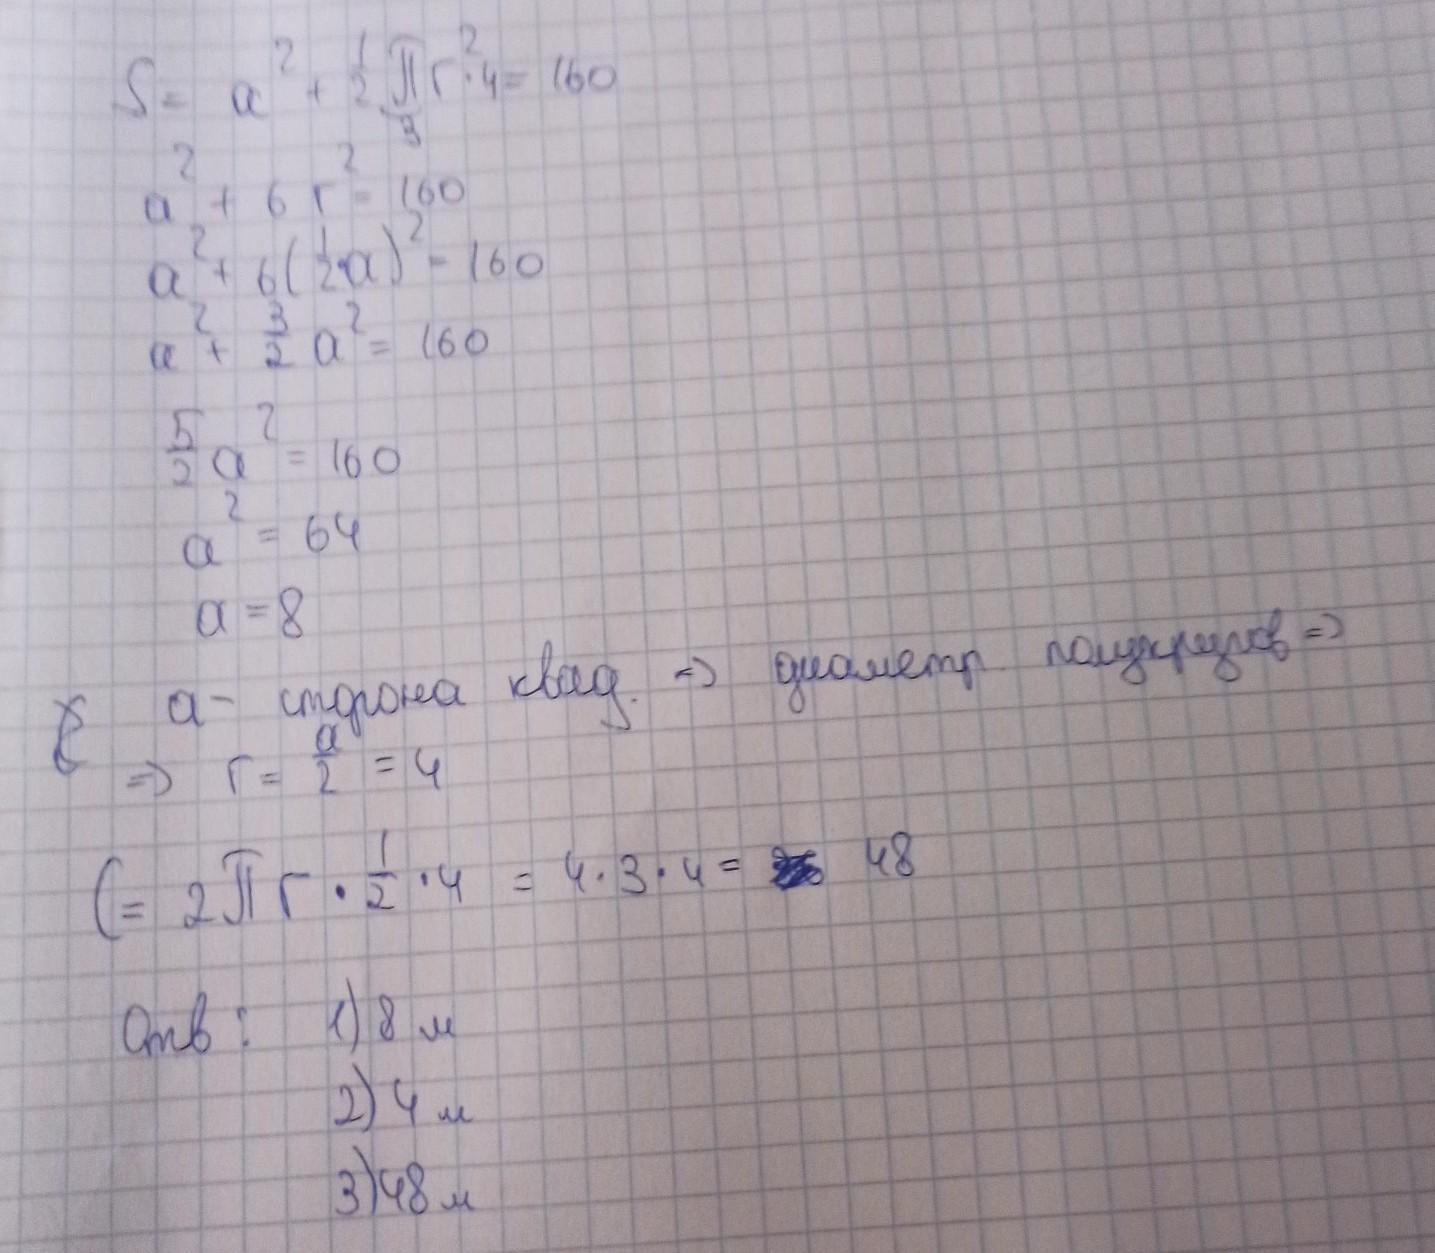 S = a² + 1/2 πr²·4 = 160
3
a² + 6 r² = 160
a² + 6(1/2·a)² = 160
a² + 3/2 a² = 160
5/2 a² = 160
a² = 64
a = 8
a - сторона квад. => диаметр полукругов =>
=> r = a/2 = 4
C = 2πr · 1/2 · 4 = 4·3·4 = 48
Отв: 1) 8 м
2) 4 м
3) 48 м